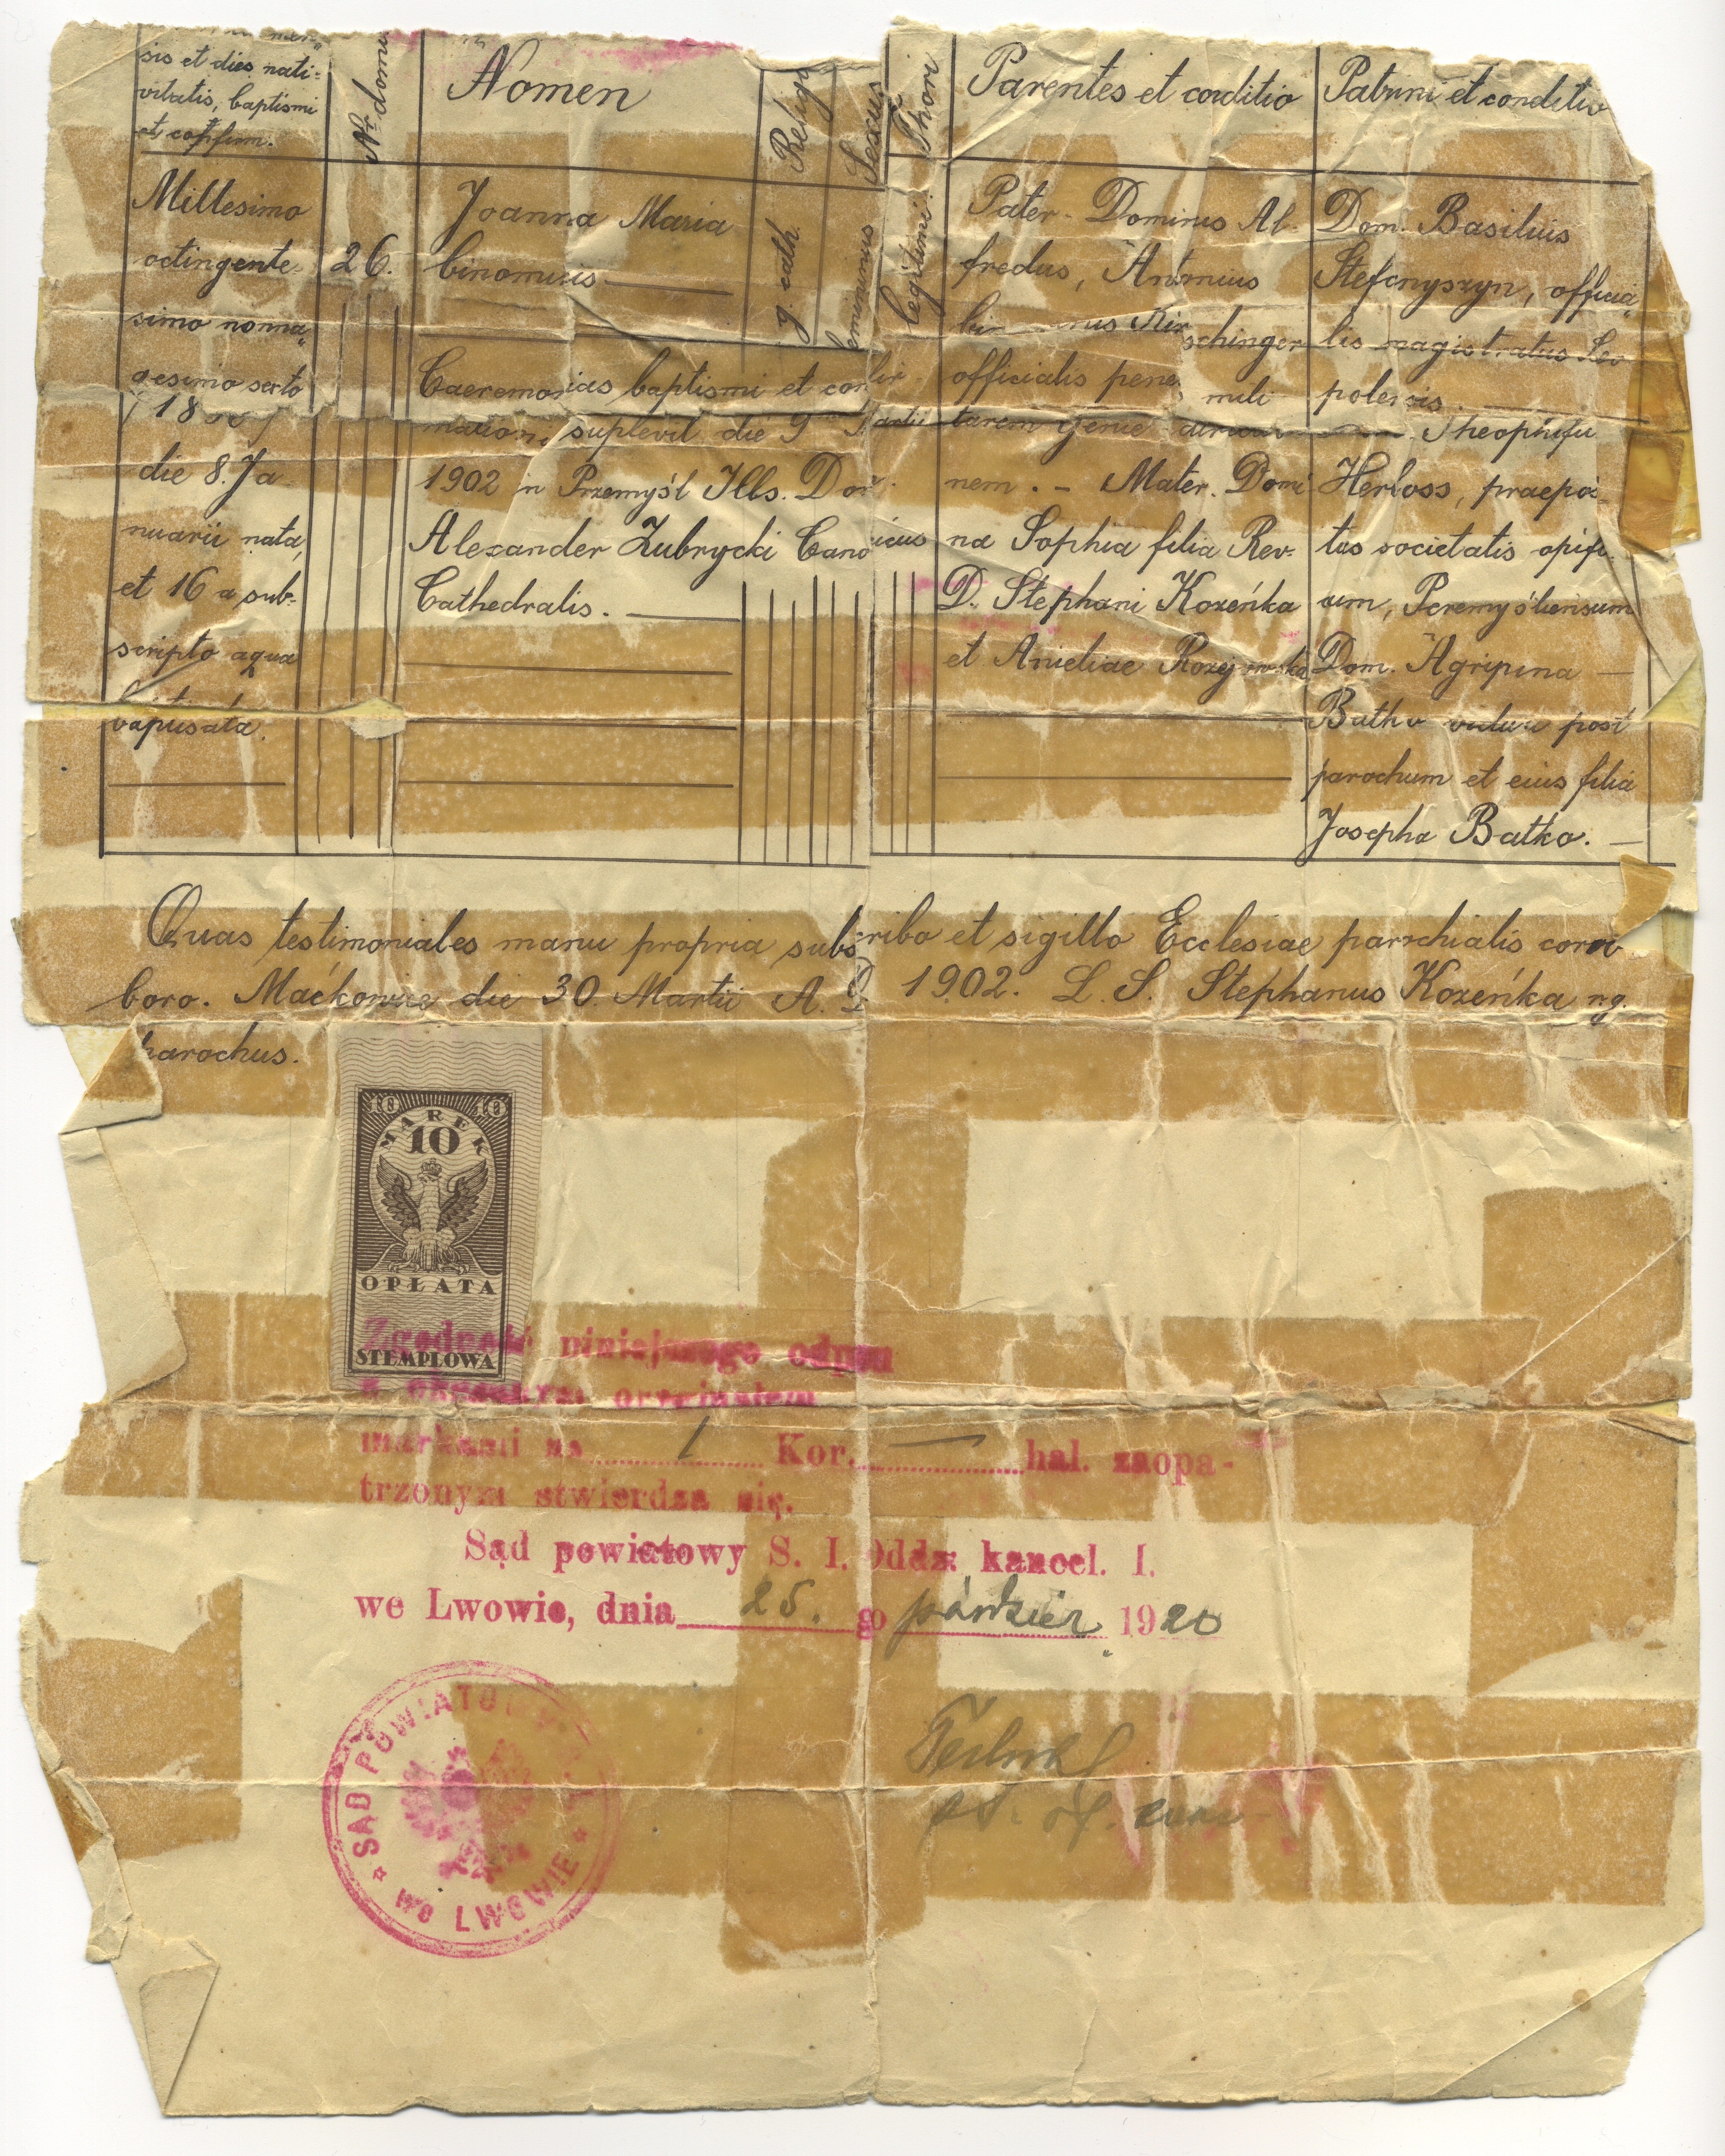 sis et dies nati=
vitatis, baptismi
et confirm.
Nr. domu
Nomen
Religi
Sexus
Thori
Parentes et conditio
Patrini et conditio
Millesimo
octingente-
simo nonna„
gesimo sexto
die 8. Ja-
nuarii nata,
et 16 a sub-
scripto aqua
baptisata.
26.
Joanna Maria
binominis
Caeremonias baptismi et confir-
mationis suplevit die 9 Martii
1902 in Przemyśl Ills. Dom.
Alexander Zubrycki Canonicus
Cathedralis.
g. cath.
femininus
legitimi
Pater - Dominus Al-
fredus, Antonius
Kirschinger
officialis penes mili
tarem genie
nem. - Mater. Domi
na Sophia filia Rev.
D. Stephani Kozeńka
et Anieliae
Dom. Basilius
Stefcnyszyn, officia„
lis magistratus Leo
polensis.
Theophilu
Herloss, praepo
tus societatis opifi-
cum,
Dom. Agripina
Batko vidua post
parochum et eius filia
Josepha Batko.
Quas testimoniales manu propria subscribo et sigillo Ecclesiae parochialis corro
boro. Maćkowice die 30. Martii A. D. 1902. L. S. Stephanus Kozeńka
parochus.
10 10
MAREK
10
OPŁATA
STEMPLOWA
Zgodność niniejszego odpisu
z okazanym oryginałem
markami na 1 Kor. — hal. zaopa-
trzonym stwierdza się.
Sąd powiatowy S. I. Oddz. kancel. I.
we Lwowie, dnia 25. go paździer 1920
SĄD POWIATOWY
we LWOWIE